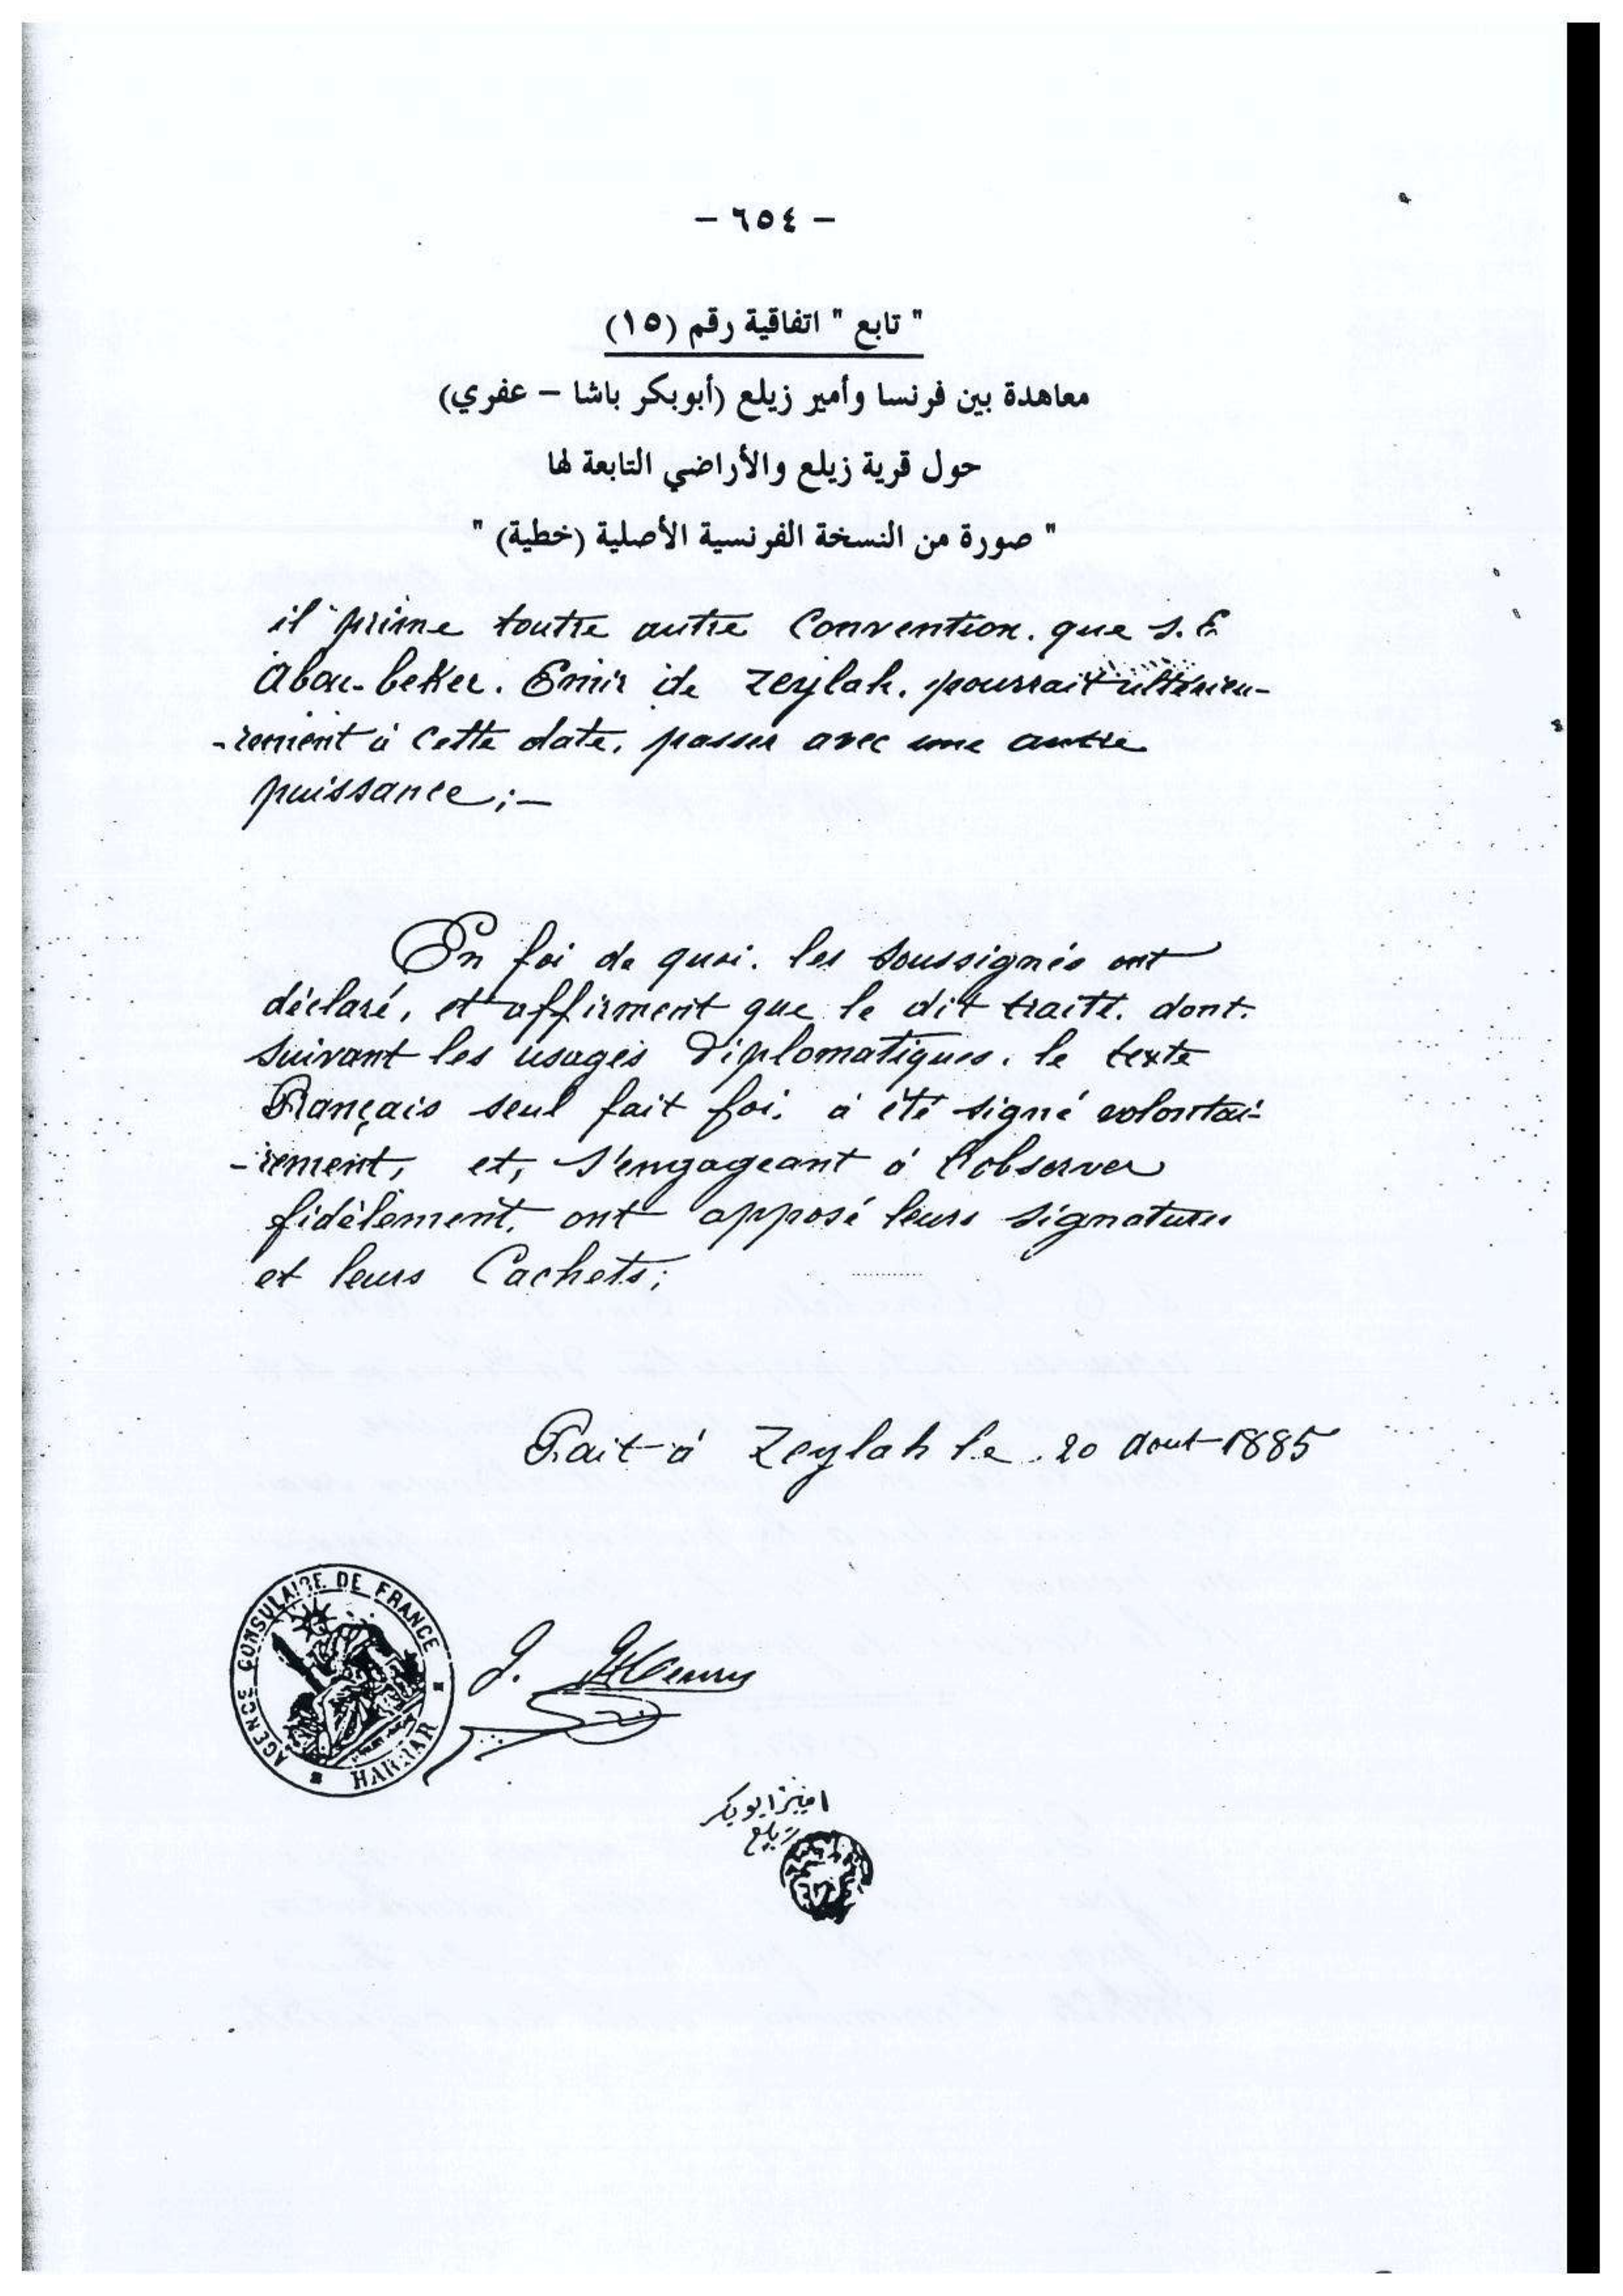 – ٦٥٤ –
" تابع " اتفاقية رقم (١٥)
معاهدة بين فرنسا وأمير زيلع (أبوبكر باشا – عفري)
حول قرية زيلع والأراضي التابعة لها
" صورة من النسخة الفرنسية الأصلية (خطية) "
il prime toutte autre Convention. que S. E
Abou-beker. Emir de Zeylah. pourrait ultérieu-
-rement à cette date, passer avec une autre
puissance;–
En foi de quoi. les soussignés ont
déclaré, et affirment que le dit traité. dont.
suivant les usages Diplomatiques. le texte
Français seul fait foi. à été signé volontai-
-rement, et, s'engageant à l'observer
fidèlement, ont apposé leurs signatures
et leurs Cachets;
Fait à Zeylah le .20 Aout 1885
AGENCE CONSULAIRE DE FRANCE
HARRAR
J. Henry
امير ابوبكر
زيلع